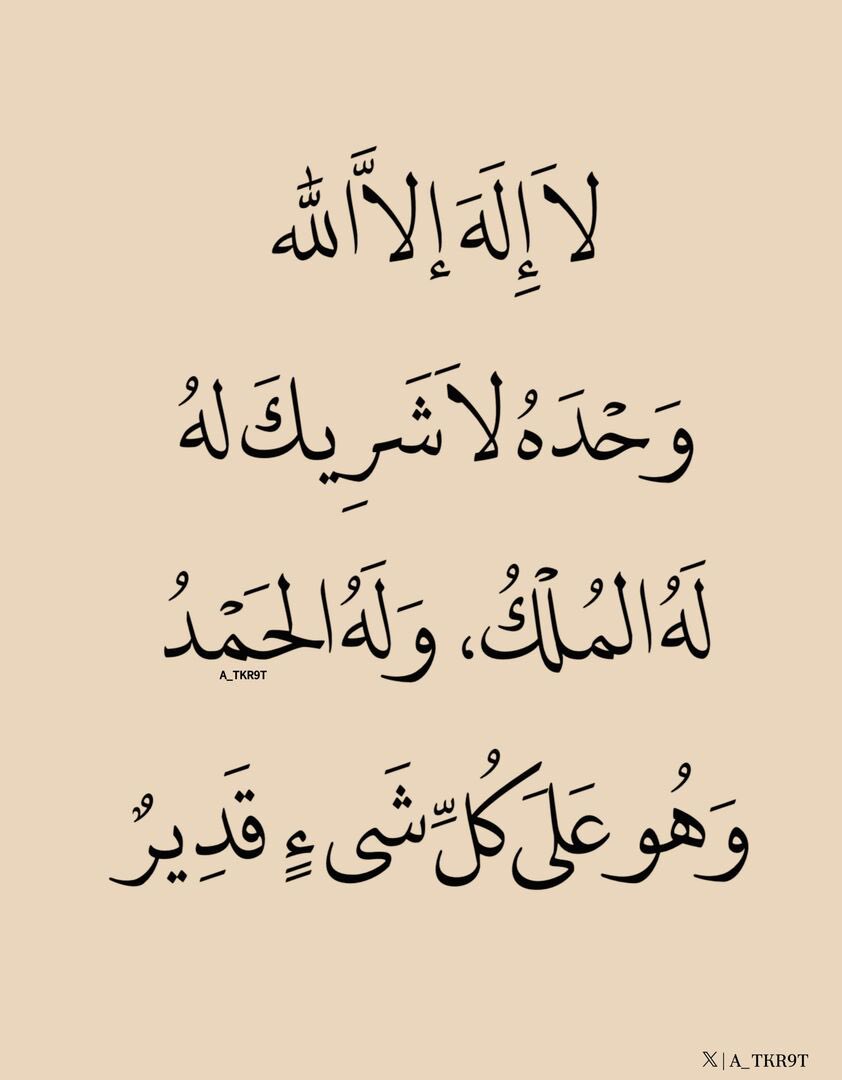 لاَ إِلَهَ إلاَّ اللّٰه
وَحْدَهُ لاَ شَرِيكَ لهُ
لَهُ المُلْكُ، وَلَهُ الحَمْدُ
A_TKR9T
وَهُو عَلَىَ كُلِّ شَىءٍ قَدِيرٌ
𝕏 | A_TKR9T